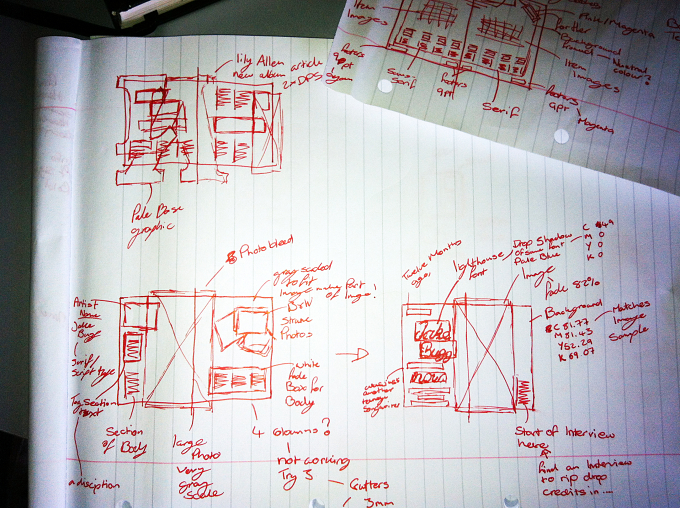 Item
Images
Plak/Magenta
Background
Neutral
colour?
Item
Images
Posters
9pt
Sans-
Serif
Posters
9pt
Serif
Posters
9pt
Magenta
Lily Allen
new album article
2 x DPS
Pale Base
graphic
Photo bleed
gray scaled
to fit
Image making part
of Image!
B+W
Photos
Artist
Name
Jake
Bugg
Script type
Try Section
text
a disciption
Section
of Body
large
Photo
very
gray
scale
white
fade
Box for
Body
4 columns?
not working
Try 3
Gutters
3mm
Twelve Months
ago
lighthouse
font
Drop Shadow
of same font
Pale Blue
C 49
M 0
Y 0
K 0
Image
fade 82%
Background
C 81.77
M 51.43
Y 52.29
K 69.07
Matches
Image
Sample
Jake
Bugg
another
teenage
songwriter
Start of Interview
here
find an Interview
to rip drop
credits in ...